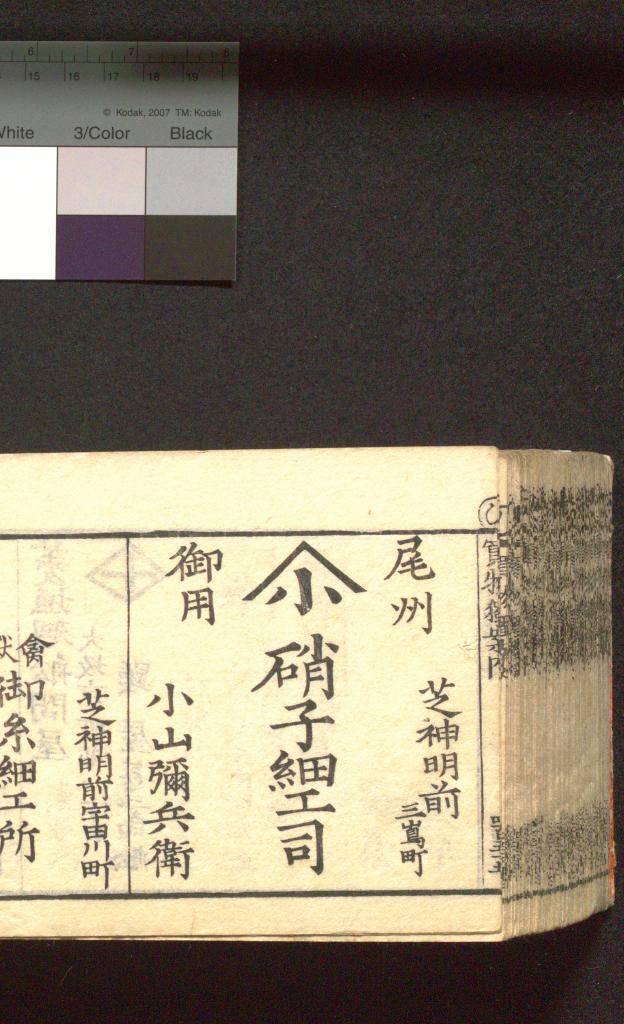 6 7 8
15 16 17 18 19
© Kodak, 2007 TM: Kodak
White 3/Color Black
尾州
芝神明前
三嶌町
小
硝子細工司
御用
小山彌兵衛
芝神明前宇田川町
禽
獣
御糸細工所